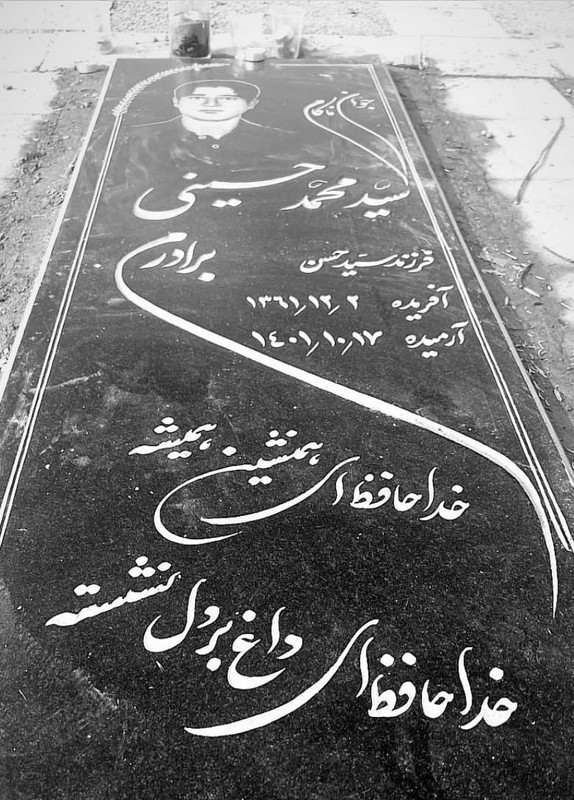 جوان ناکام
سید محمد حسینی
فرزند سید حسن
برادرم
آفریده ۲ ,۱۲ ,۱۳۶۱
آرمیده ۱۷ ,۱۰ ,۱۴۰۱
خداحافظ ای همنشین همیشه
خداحافظ ای داغ بر دل نشسته